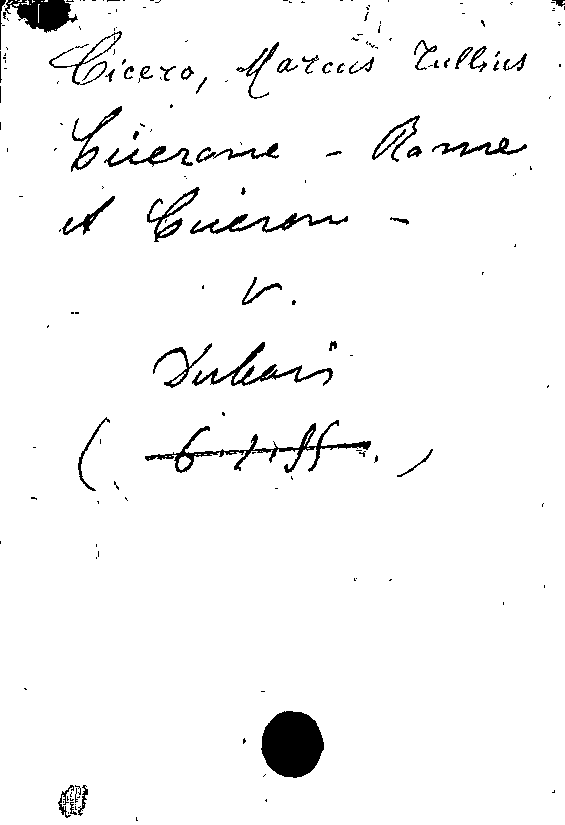 Cicero, Marcus Tullius
Cicerone - Rome
et Ciceron -
v.
Dubois
(6.1.55.)